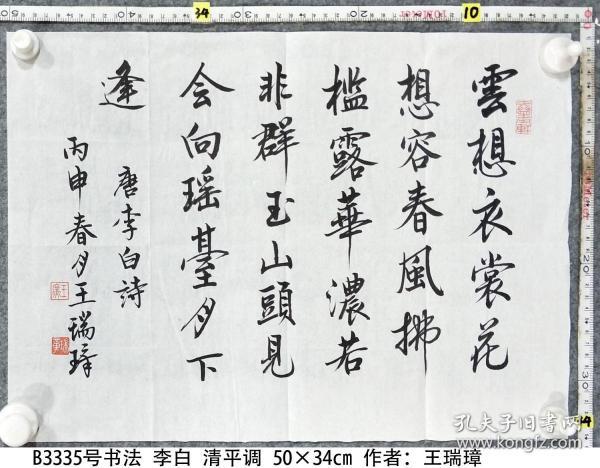 雲想衣裳花
想容春風拂
檻露華濃若
非群玉山頭見
会向瑶臺月下
逢
唐李白詩
丙申春月王瑞璋
孔夫子旧书网
www.kongfz.com
B3335号书法 李白 清平调 50×34cm 作者：王瑞璋